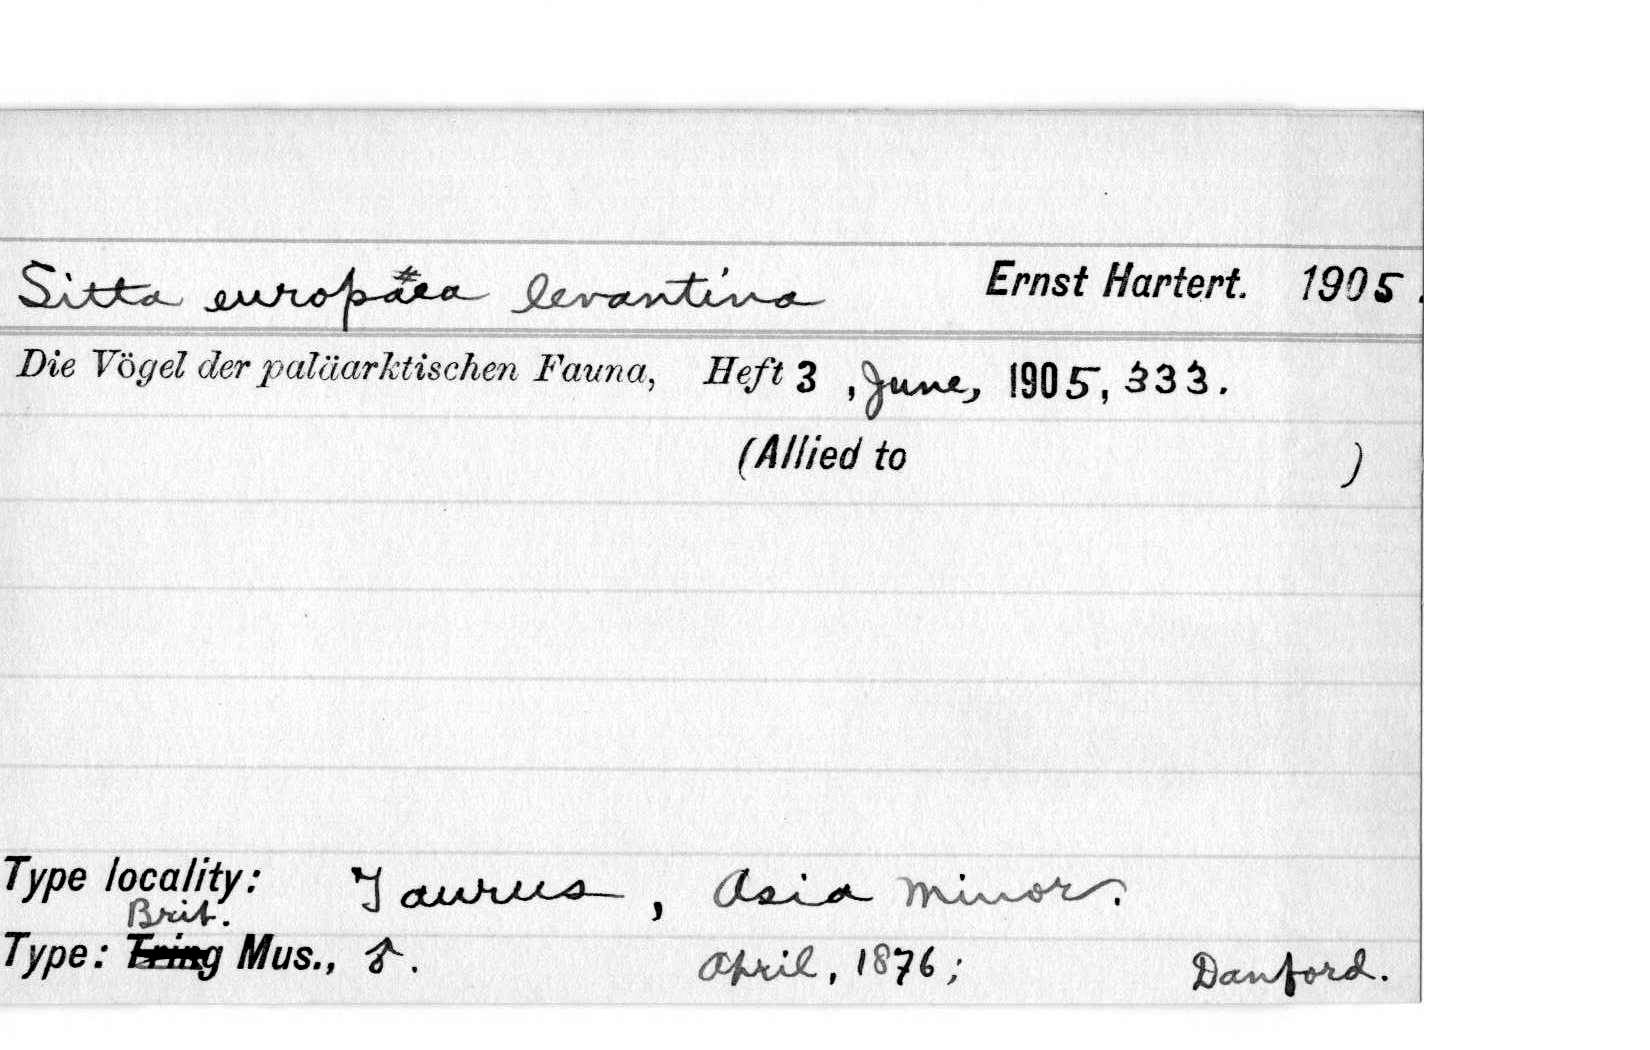 Sitta europaea levantina Ernst Hartert. 1905.
Die Vögel der paläarktischen Fauna, Heft 3, June, 1905, 333.
(Allied to )
Type locality: Taurus, Asia Minor.
Brit.
Type: Tring Mus., ♂. April, 1876; Danford.